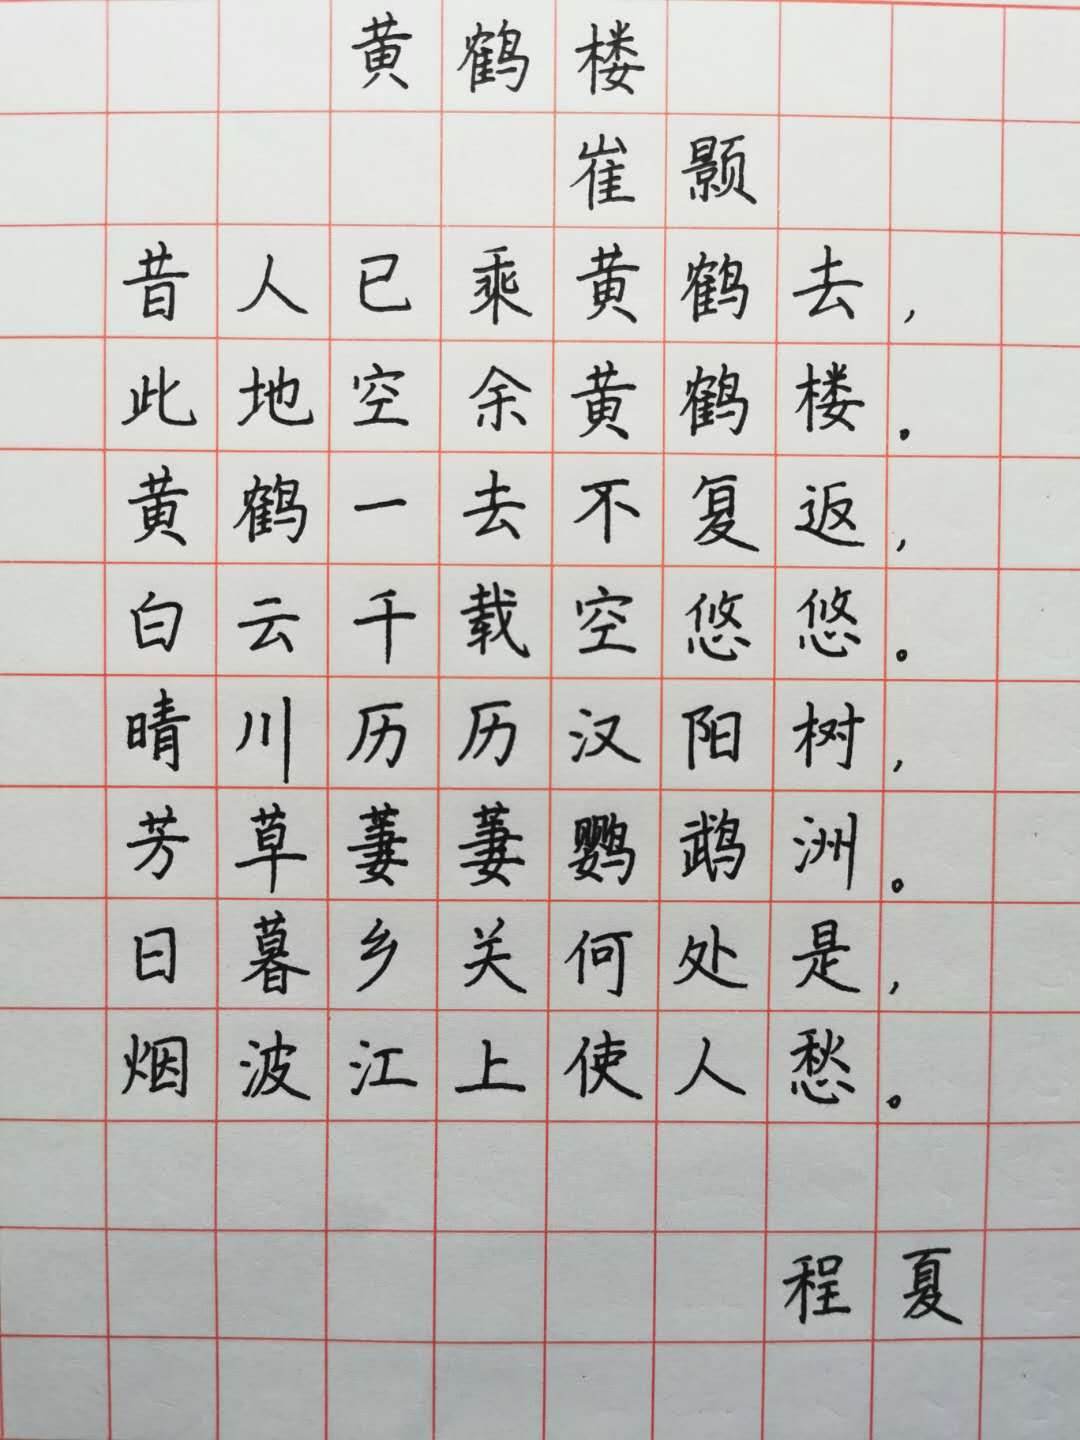 黄鹤楼
崔颢
昔人已乘黄鹤去,
此地空余黄鹤楼。
黄鹤一去不复返,
白云千载空悠悠。
晴川历历汉阳树,
芳草萋萋鹦鹉洲。
日暮乡关何处是,
烟波江上使人愁。
程夏